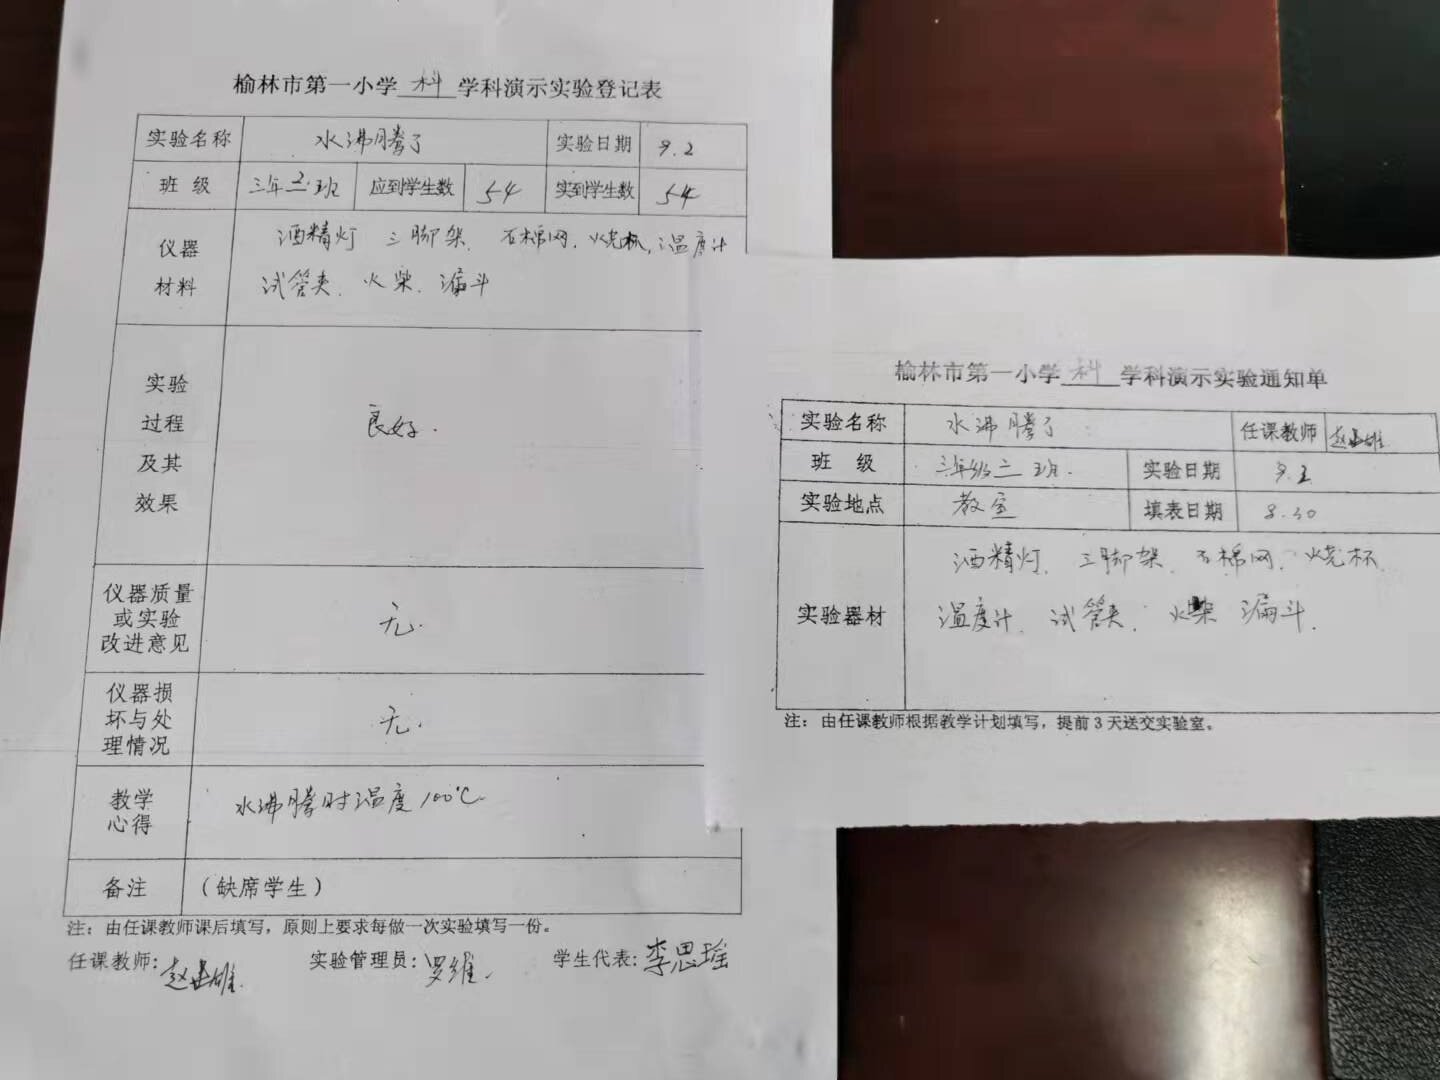 榆林市第一小学 科 学科演示实验登记表
实验名称 水沸腾了 实验日期 9.2
班 级 三年 2 班 应到学生数 54 实到学生数 54
仪器材料 酒精灯 三脚架、石棉网、烧杯、温度计
试管夹、火柴、漏斗
实验过程及其效果 良好.
仪器质量或实验改进意见 无.
仪器损坏与处理情况 无.
教学心得 水沸腾时温度100℃.
备注 (缺席学生)
注：由任课教师课后填写，原则上要求每做一次实验填写一份。
任课教师: 赵雄 实验管理员: 罗维. 学生代表: 李思瑶
榆林市第一小学 科 学科演示实验通知单
实验名称 水沸腾了 任课教师 赵雄
班 级 三年级二班. 实验日期 9.2
实验地点 教室 填表日期 8.30
实验器材 酒精灯、三脚架、石棉网、烧杯、
温度计、试管夹、火柴 漏斗.
注：由任课教师根据教学计划填写，提前3天送交实验室。